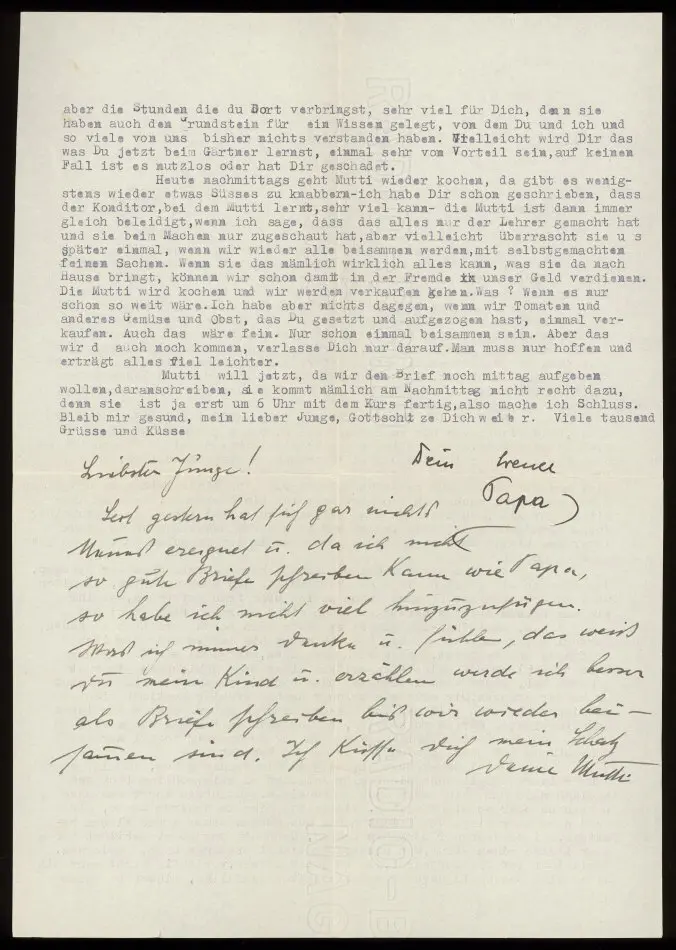 aber die Stunden die du Dort verbringst, sehr viel für Dich, denn sie
haben auch den Grundstein für ein Wissen gelegt, von dem Du und ich und
so viele von uns bisher nichts verstanden haben. Vielleicht wird Dir das
was Du jetzt beim Gärtner lernst, einmal sehr von Vorteil sein,auf keinen
Fall ist es nutzlos oder hat Dir geschadet.
Heute nachmittags geht Mutti wieder kochen, da gibt es wenig-
stens wieder etwas Süsses zu knabbern-ich habe Dir schon geschrieben, dass
der Konditor,bei dem Mutti lernt,sehr viel kann- die Mutti ist dann immer
gleich beleidigt,wenn ich sage, dass das alles nur der Lehrer gemacht hat
und sie beim Machen nur zugeschaut hat,aber vielleicht überrascht sie u s
später einmal, wenn wir wieder alle beisammen werden,mit selbstgemachten
feinen Sachen. Wenn sie das nämlich wirklich alles kann, was sie da nach
Hause bringt, können wir schon damit in der Fremde unser Geld verdienen.
Die Mutti wird kochen und wir werden verkaufen gehen.Was ? Wenn es nur
schon so weit wäre.Ich habe aber nichts dagegen, wenn wir Tomaten und
anderes Gemüse und Obst, das Du gesetzt und aufgezogen hast, einmal ver-
kaufen. Auch das wäre fein. Nur schon einmal beisammen sein. Aber das
wir d auch noch kommen, verlasse Dich nur darauf.Man muss nur hoffen und
erträgt alles viel leichter.
Mutti will jetzt, da wir den Brief noch mittag aufgeben
wollen,daranschreiben, sie kommt nämlich am Nachmittag nicht recht dazu,
denn sie ist ja erst um 6 Uhr mit dem Kurs fertig,also mache ich Schluss.
Bleib mir gesund, mein lieber Junge, Gottschü ze Dich wei te r. Viele tausend
Grüsse und Küsse
Dein treuer
Papa
Liebster Junge!
Seit gestern hat sich gar nichts
Neues ereignet u. da ich nicht
so gute Briefe schreiben kann wie Papa,
so habe ich nicht viel hinzuzufügen.
Was ich immer denke u. fühle, das weisst
Du mein Kind u. erzählen werde ich besser
als Briefe schreiben bis wir wieder bei-
sammen sind. Ich küsse Dich mein Schatz
Deine Mutti